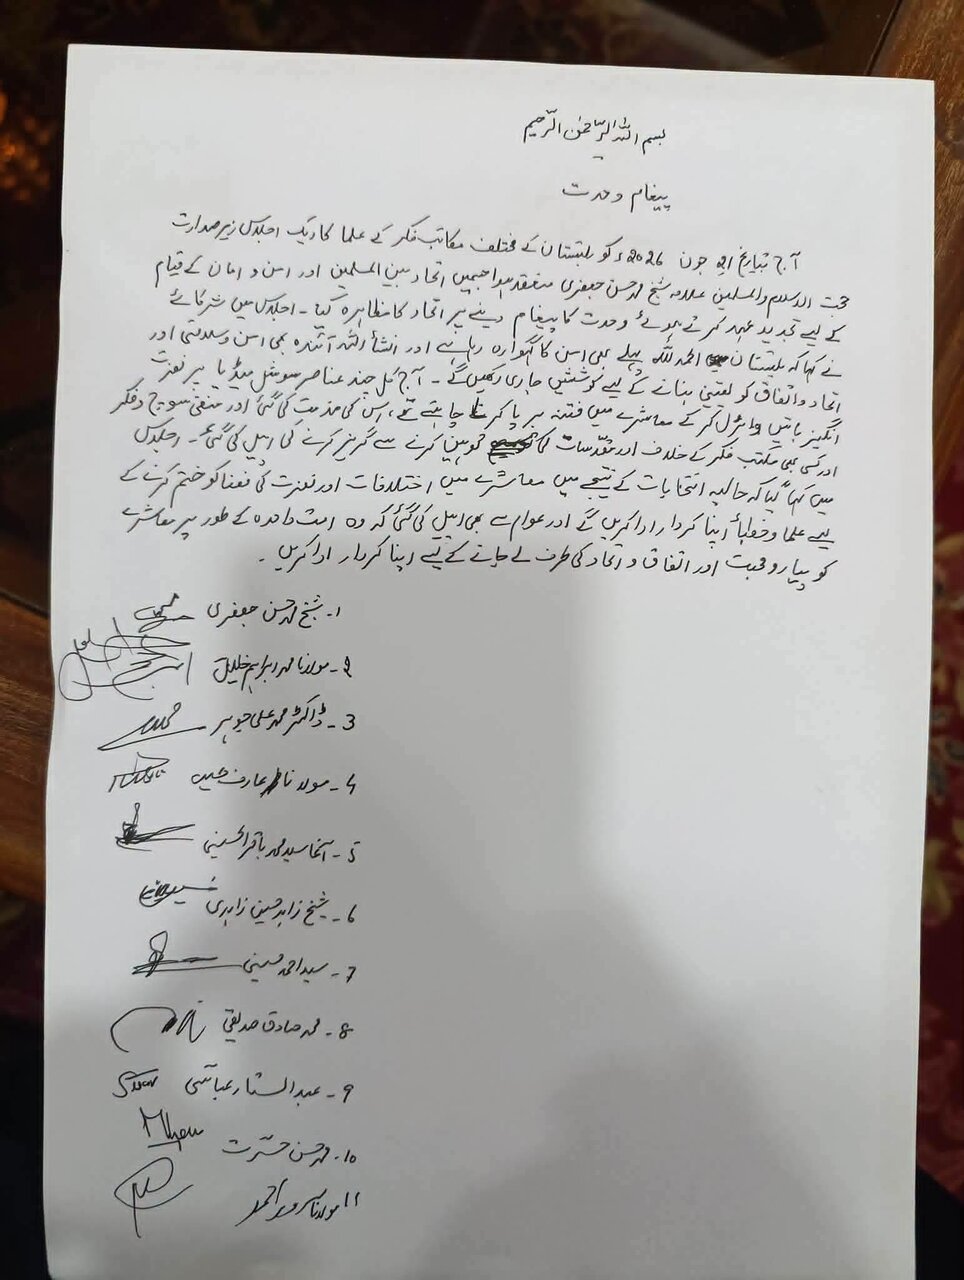 بسم اللہ الرحمٰن الرحیم
پیغام وحدت
آج بتاریخ 21 جون 2026ء کو بلتستان کے مختلف مکاتب فکر کے علما کا ایک اجلاس زیر صدارت
حجت الاسلام والمسلمین علامہ شیخ محمد حسن جعفری منعقد ہوا جسمیں اتحاد بین المسلمین اور امن و امان کے قیام
کے لیے تجدید عہد کرتے ہوئے وحدت کا پیغام دینے پر اتحاد کا مظاہرہ کیا۔ اجلاس میں شرکائے
نے کہا کہ بلتستان الحمد للہ پہلے بھی امن کا گہوارہ رہا ہے اور انشأ اللہ آئندہ بھی امن و سلامتی اور
اتحاد و اتفاق کو یقینی بنانے کے لیے کوششیں جاری رکھیں گے۔ آج کل چند عناصر سوشل میڈیا پر نفرت
انگیز باتیں وائرل کر کے معاشرے میں فتنہ برپا کرنا چاہتے ہیں، اس کی مذمت کی گئی اور منفی سوچ و فکر
اور کسی بھی مکتب فکر کے خلاف اور مقدسات کی توہین کرنے سے گریز کرنے کی اپیل کی گئی۔ اجلاس
میں کہا گیا کہ حالیہ انتخابات کے نتیجے میں معاشرے میں اختلافات اور نفرت کی فضا کو ختم کرنے کے
لیے علما و خطبأ اپنا کردار ادا کریں گے اور عوام سے بھی اپیل کی گئی کہ وہ امت واحدہ کے طور پر معاشرے
کو پیار و محبت اور اتفاق و اتحاد کی طرف لے جانے کے لیے اپنا کردار ادا کریں۔
1۔ شیخ محمد حسن جعفری
2۔ مولانا محمد ابراہیم خلیل
3۔ ڈاکٹر محمد علی جوہر
4۔ مولانا عارف
5۔ آغا سید محمد باقر الحسینی
6۔ شیخ زاہد حسین زاہدی
7۔ سید احمد حسینی
8۔ محمد صادق صدیقی
9۔ عبد الستار عباسی
10۔ محمد حسن حسرت
11 مولانا سرور احمد